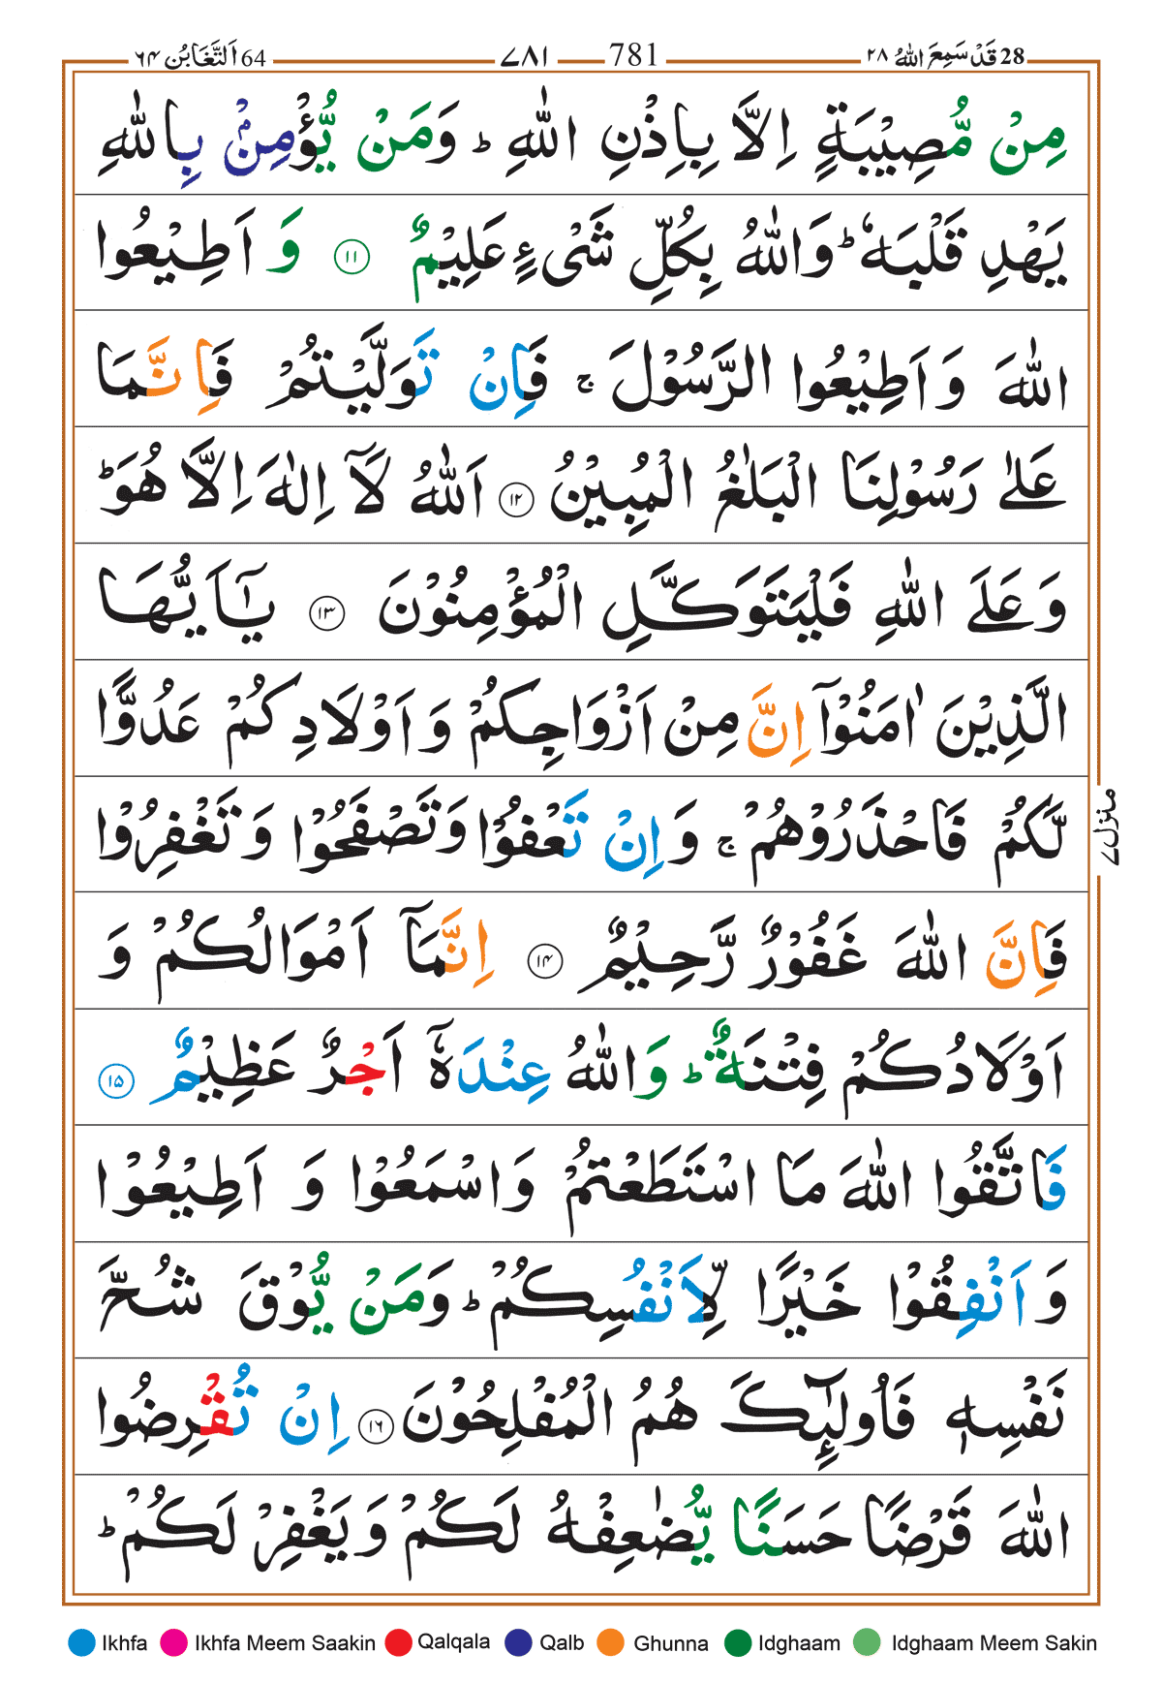 28 قَدْ سَمِعَ اللّٰهُ ٢٨ 781 ٧٨١ 64 اَلتَّغَابُن ٦٤
مِنْ مُّصِيْبَةٍ اِلَّا بِاِذْنِ اللّٰهِ ؕ وَمَنْ يُّؤْمِنْۢ بِاللّٰهِ
يَهْدِ قَلْبَهٗ ؕ وَاللّٰهُ بِكُلِّ شَىْءٍ عَلِيْمٌ ١١ وَ اَطِيْعُوا
اللّٰهَ وَ اَطِيْعُوا الرَّسُوْلَ ۚ فَاِنْ تَوَلَّيْتُمْ فَاِنَّمَا
عَلٰى رَسُوْلِنَا الْبَلٰغُ الْمُبِيْنُ ١٢ اَللّٰهُ لَاۤ اِلٰهَ اِلَّا هُوَ ؕ
وَ عَلَى اللّٰهِ فَلْيَتَوَكَّلِ الْمُؤْمِنُوْنَ ١٣ يٰۤاَيُّهَا
الَّذِيْنَ اٰمَنُوْۤا اِنَّ مِنْ اَزْوَاجِكُمْ وَ اَوْلَادِكُمْ عَدُوًّا
لَّكُمْ فَاحْذَرُوْهُمْ ۚ وَ اِنْ تَعْفُوْا وَتَصْفَحُوْا وَ تَغْفِرُوْا
فَاِنَّ اللّٰهَ غَفُوْرٌ رَّحِيْمٌ ١٤ اِنَّمَاۤ اَمْوَالُكُمْ وَ
اَوْلَادُكُمْ فِتْنَةٌ ؕ وَاللّٰهُ عِنْدَهٗۤ اَجْرٌ عَظِيْمٌ ١٥
فَاتَّقُوا اللّٰهَ مَا اسْتَطَعْتُمْ وَاسْمَعُوْا وَ اَطِيْعُوْا
وَ اَنْفِقُوْا خَيْرًا لِّاَنْفُسِكُمْ ؕ وَمَنْ يُّوْقَ شُحَّ
نَفْسِهٖ فَاُولٰٓئِكَ هُمُ الْمُفْلِحُوْنَ ١٦ اِنْ تُقْرِضُوا
اللّٰهَ قَرْضًا حَسَنًا يُّضٰعِفْهُ لَكُمْ وَ يَغْفِرْ لَكُمْ ؕ
منزل ٧
Ikhfa Ikhfa Meem Saakin Qalqala Qalb Ghunna Idghaam Idghaam Meem Sakin